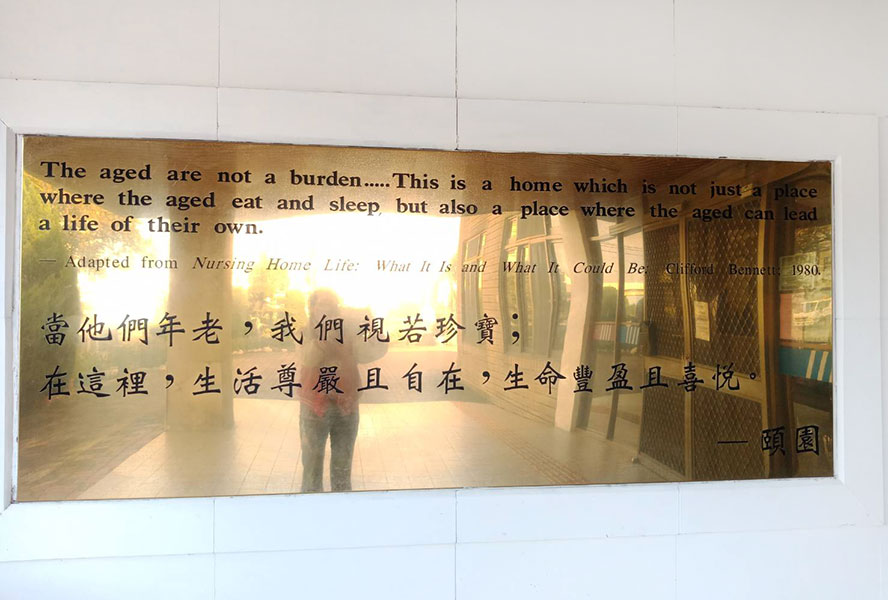 The aged are not a burden.....This is a home which is not just a place
where the aged eat and sleep, but also a place where the aged can lead
a life of their own.
— Adapted from Nursing Home Life: What It Is and What It Could Be; Clifford Bennett: 1980.
當他們年老，我們視若珍寶；
在這裡，生活尊嚴且自在，生命豐盈且喜悅。
— 頤園